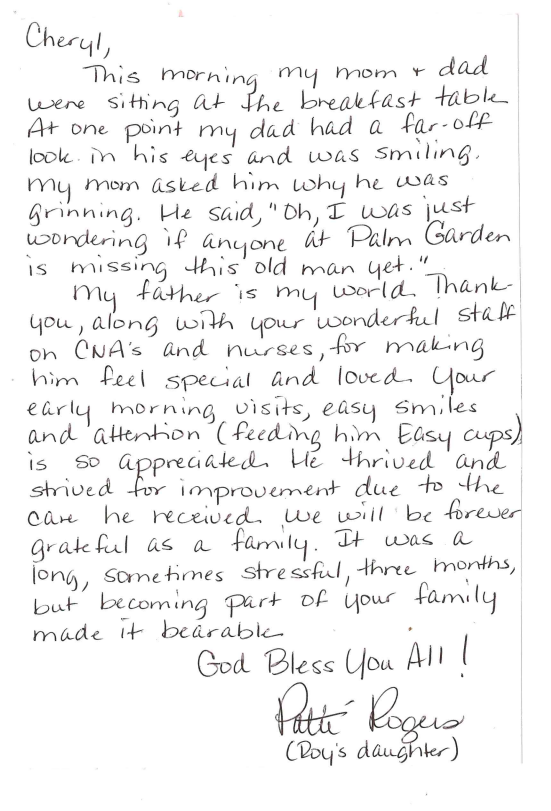 Cheryl,
This morning my mom + dad
were sitting at the breakfast table.
At one point my dad had a far-off
look in his eyes and was smiling.
My mom asked him why he was
grinning. He said, "Oh, I was just
wondering if anyone at Palm Garden
is missing this old man yet."
My father is my world. Thank
you, along with your wonderful staff
on CNA's and nurses, for making
him feel special and loved. Your
early morning visits, easy smiles
and attention (feeding him Easy cups)
is so appreciated. He thrived and
strived for improvement due to the
care he received. We will be forever
grateful as a family. It was a
long, sometimes stressful, three months,
but becoming part of your family
made it bearable.
God Bless You All!
Patti Rogers
(Roy's daughter)